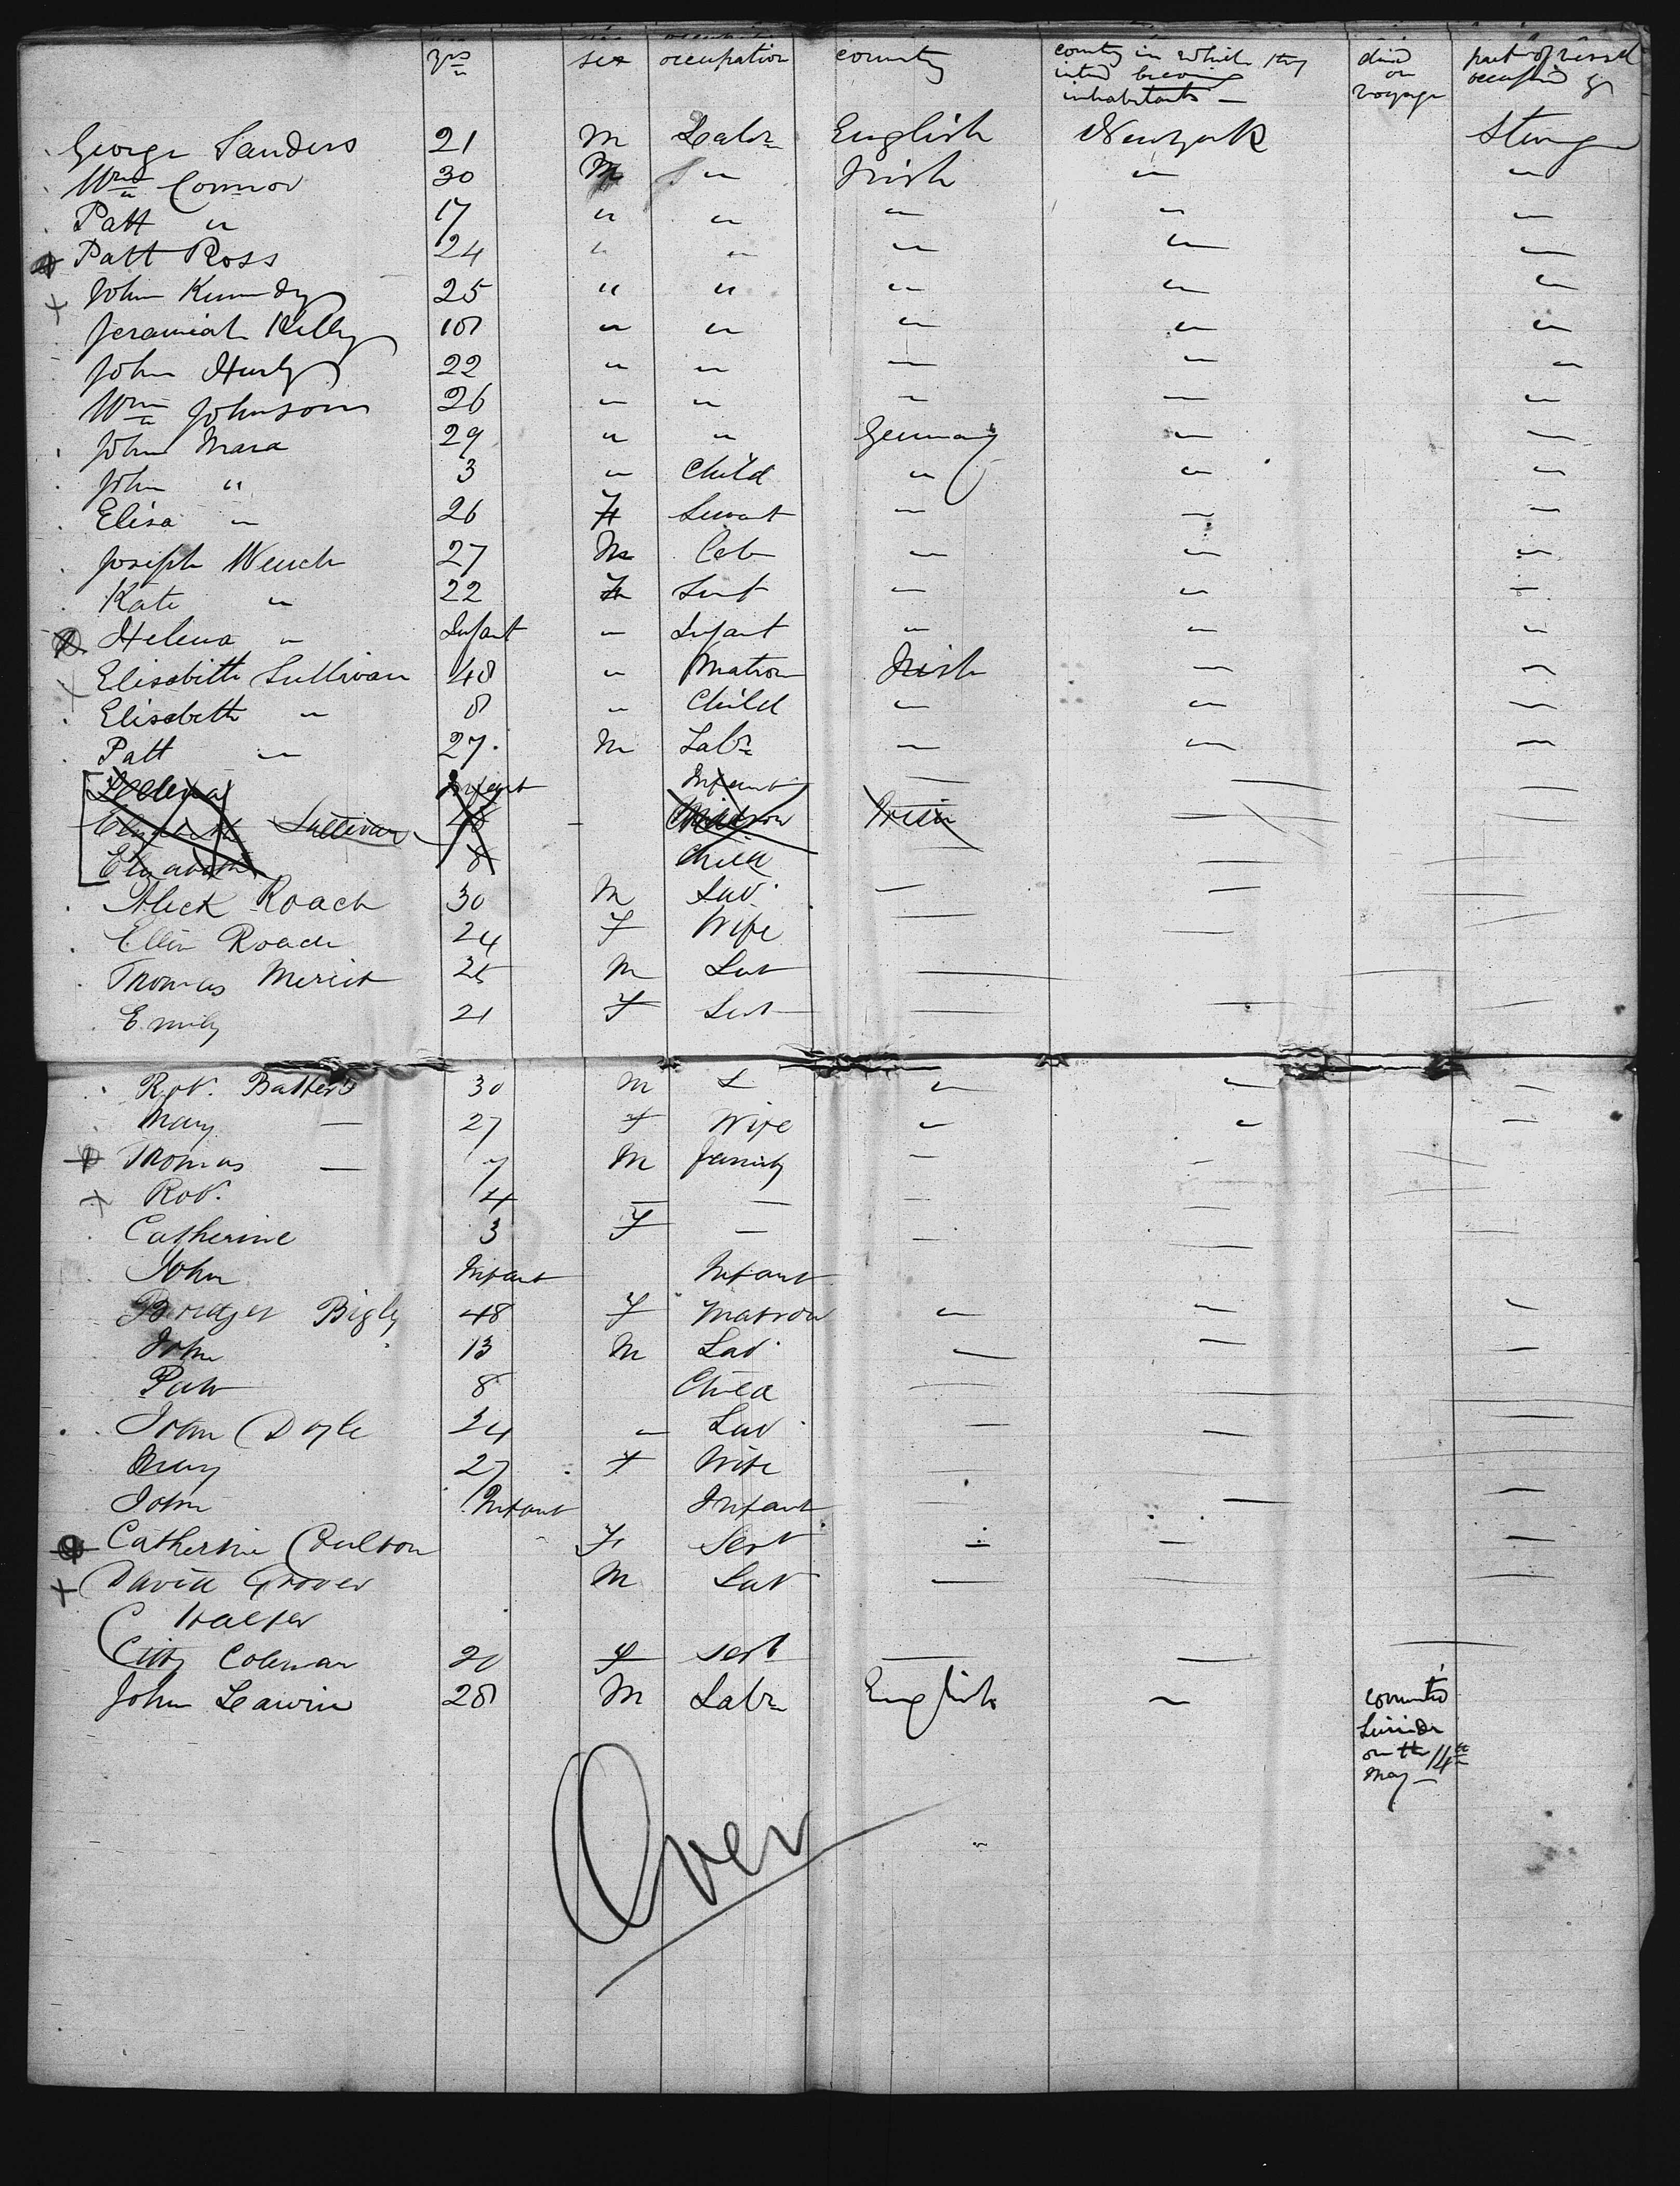 yrs sex occupation country country in which they intend becoming inhabitants — died on voyage part of vessel occupied by
George Sanders 21 M Labr English Newyork Sterage
Wm Connor 30 M " Irish " "
Patt " 17 " " " " "
Patt Ross 24 " " " " "
John Kennedy 25 " " " " "
Jeramiah Kelly 18 " " " " "
John Hurly 22 " " — " "
Wm Johnson 26 " " " — "
John Mara 29 " " Germany " —
John " 3 " Child " " "
Elisa " 26 F Servant — — —
Joseph Wench 27 M Lab — " "
Kate " 22 F Servt — " —
Helena " Infant " Infant " " "
Elisabith Sullivan 48 " Matron Irish — "
Elisabeth " 8 " Child " " —
Patt " 27. M Labr — " —
Helena Infant Infant — — —
Elizabeth Sullivan 48 — Matron Irish — —
Elizabeth 8 Child — —
Aleck Roach 30 M Lab. — — —
Ellin Roach 24 F Wife — — —
Thomas Merrit 25 M Lab — — —
Emily 21 F Servt — — —
Robt. Batters 30 M L " " —
Mary — 27 F Wife " " —
Thomas — 7 M family — — —
Robt. 4 — — — — —
Catherine 3 F — — — —
John Infant Infant
Bridget Bigly 48 F Matron " " "
John 13 M Lab. — — —
Patt 8 Child — — —
John Doyle 24 " Lab. — — —
Mary 27 F Wife — — —
John Infant Infant — — —
Catherine Coulton F Servt — — —
David Grover M Lab — — —
Walter
Citty Coleman 20 F Servt — — —
John Leawin 28 M Labr English " committed
Suicide
on the 14th
May —
Over